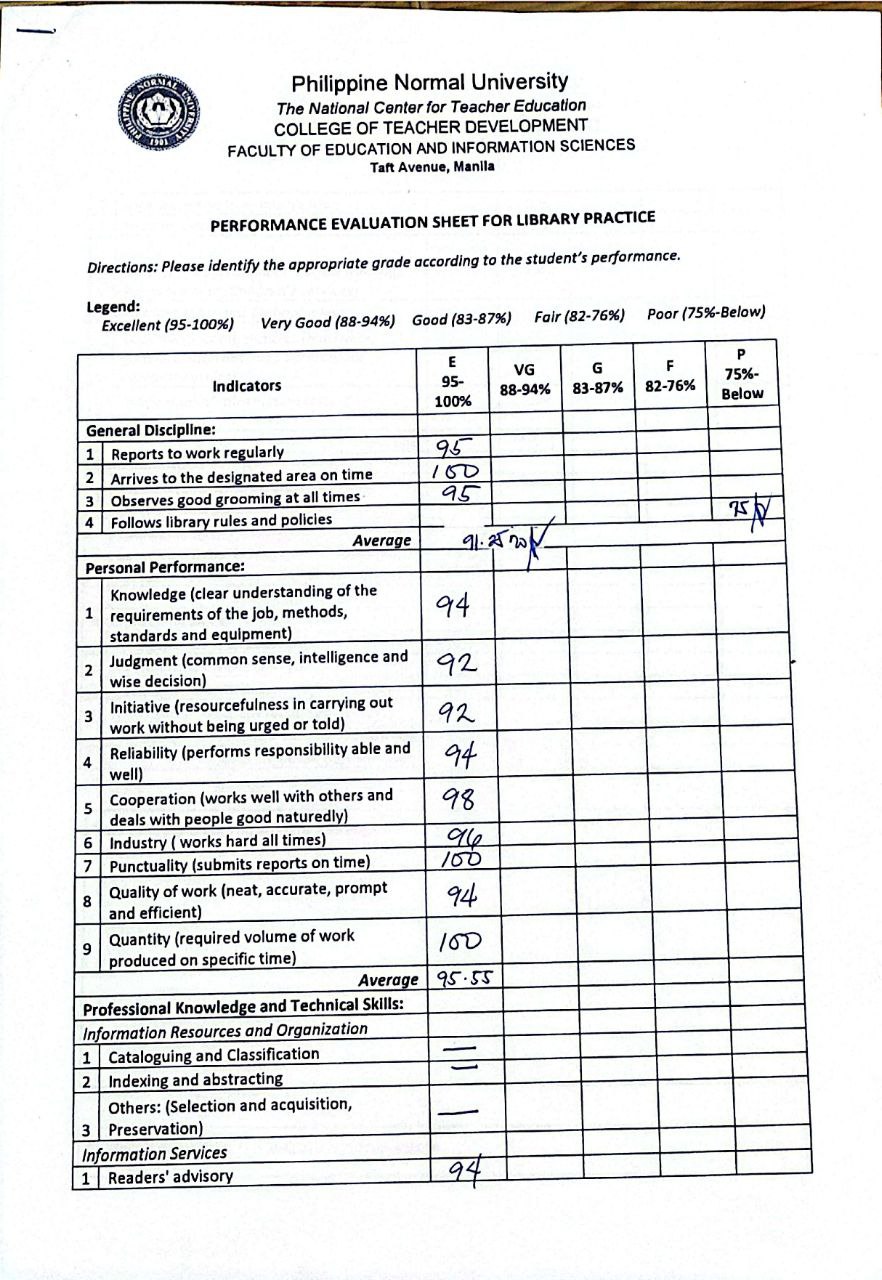 PHILIPPINE NORMAL UNIVERSITY
1901
Philippine Normal University
The National Center for Teacher Education
COLLEGE OF TEACHER DEVELOPMENT
FACULTY OF EDUCATION AND INFORMATION SCIENCES
Taft Avenue, Manila
PERFORMANCE EVALUATION SHEET FOR LIBRARY PRACTICE
Directions: Please identify the appropriate grade according to the student's performance.
Legend:
Excellent (95-100%) Very Good (88-94%) Good (83-87%) Fair (82-76%) Poor (75%-Below)
Indicators E 95-100% VG 88-94% G 83-87% F 82-76% P 75%-Below
General Discipline:
1 Reports to work regularly 95
2 Arrives to the designated area on time 100
3 Observes good grooming at all times 95
4 Follows library rules and policies 75
Average 91.25%
Personal Performance:
1 Knowledge (clear understanding of the
requirements of the job, methods, 94
standards and equipment)
2 Judgment (common sense, intelligence and 92
wise decision)
3 Initiative (resourcefulness in carrying out 92
work without being urged or told)
4 Reliability (performs responsibility able and 94
well)
5 Cooperation (works well with others and 98
deals with people good naturedly)
6 Industry ( works hard all times) 96
7 Punctuality (submits reports on time) 100
8 Quality of work (neat, accurate, prompt 94
and efficient)
9 Quantity (required volume of work 100
produced on specific time)
Average 95.55
Professional Knowledge and Technical Skills:
Information Resources and Organization
1 Cataloguing and Classification —
2 Indexing and abstracting —
Others: (Selection and acquisition, —
3 Preservation)
Information Services
1 Readers' advisory 94